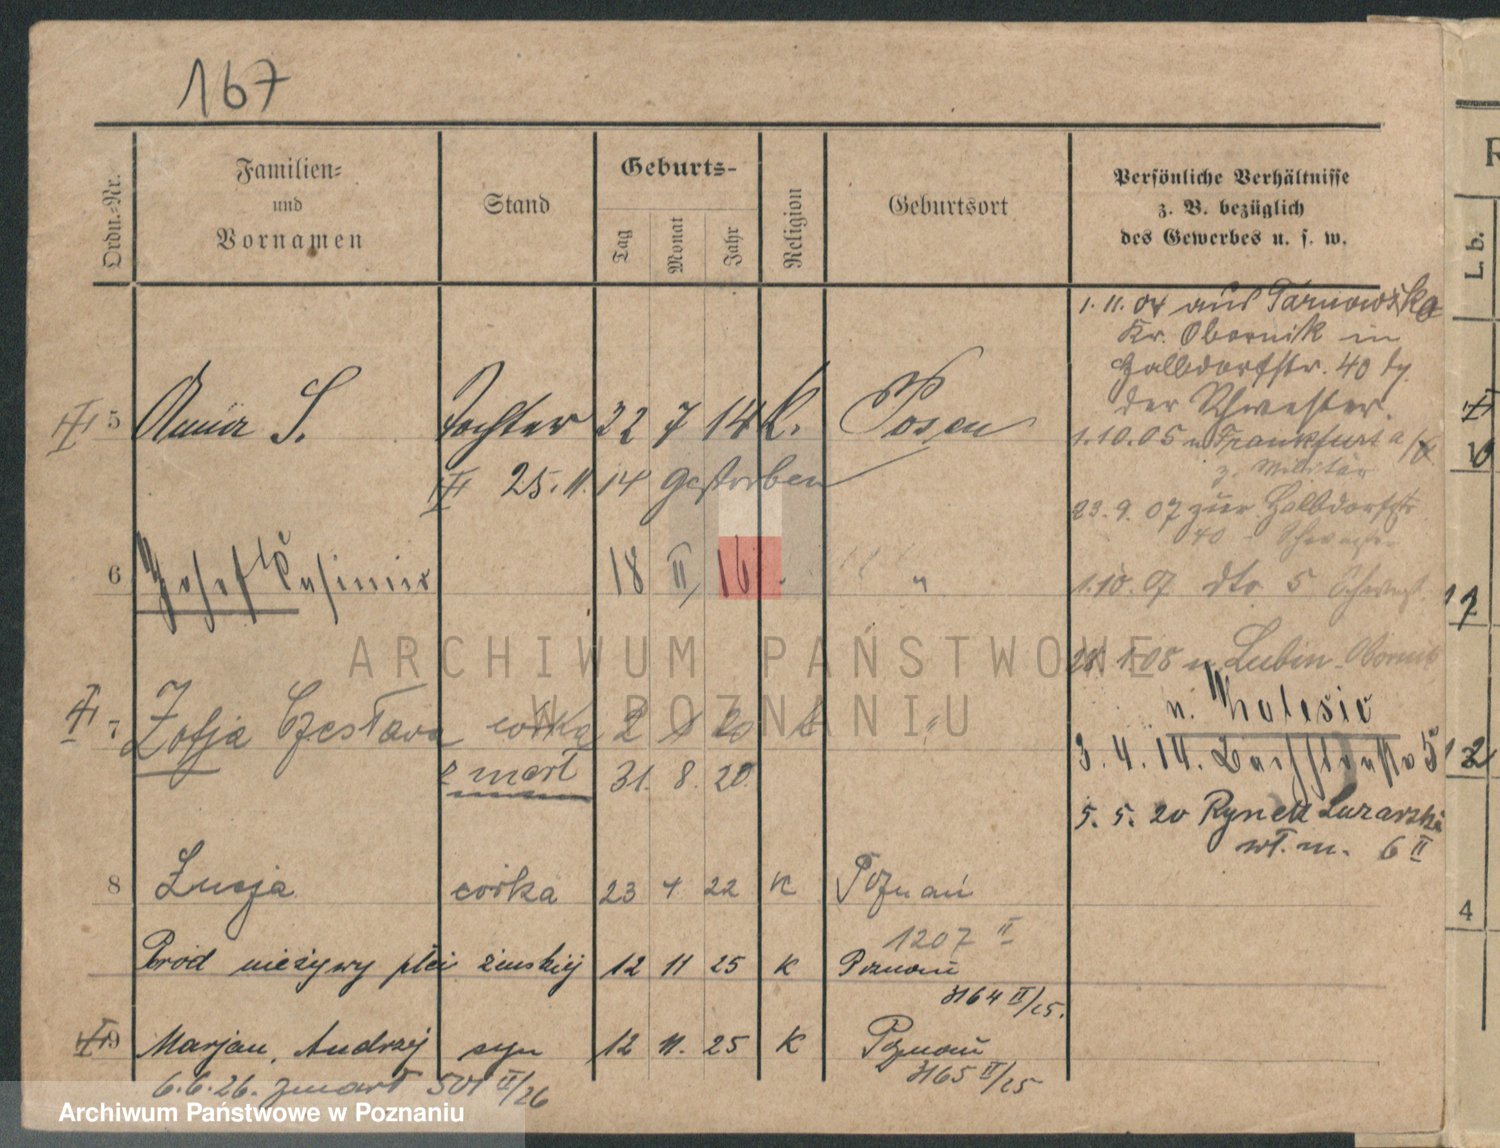 167
Ordn.-Nr.
Familien-
und
Vornamen
Stand
Geburts-
Tag
Monat
Jahr
Religion
Geburtsort
Persönliche Verhältnisse
z. B. bezüglich
des Gewerbes u. s. w.
5 Anna S. Tochter 22 7 14 K. Posen
25. 11. 14 gestorben
6 Josef Kasimir 18 II 16 "
7 Zofja Czesława córka 2 20 "
zmarł 31. 8. 20
8 Łucja córka 23 22 K Poznań
1207 II
Poród nieżywy płci żenskiej 12 11 25 K Poznań
3164 II/25.
9 Marjan, Andrzej syn 12 11. 25 K Poznań
3165 II/25
6.6.26. zmarł 501 II/26
1. 11. 04 aus
Kr. Obornik in
Halbdorfstr. 40 bg.
der Schwester.
1. 10. 05 n. Frankfurt a/O
z. Militär
23. 9. 07 zur Halbdorfstr
40
1. 10. 07 dto 5
n. Lubin Obornik
n.
3. 4. 14. 5
5. 5. 20 Rynek Łazarski
wł. m. 6 II
R
L. b.
4
ARCHIWUM PAŃSTWOWE
W POZNANIU
Archiwum Państwowe w Poznaniu